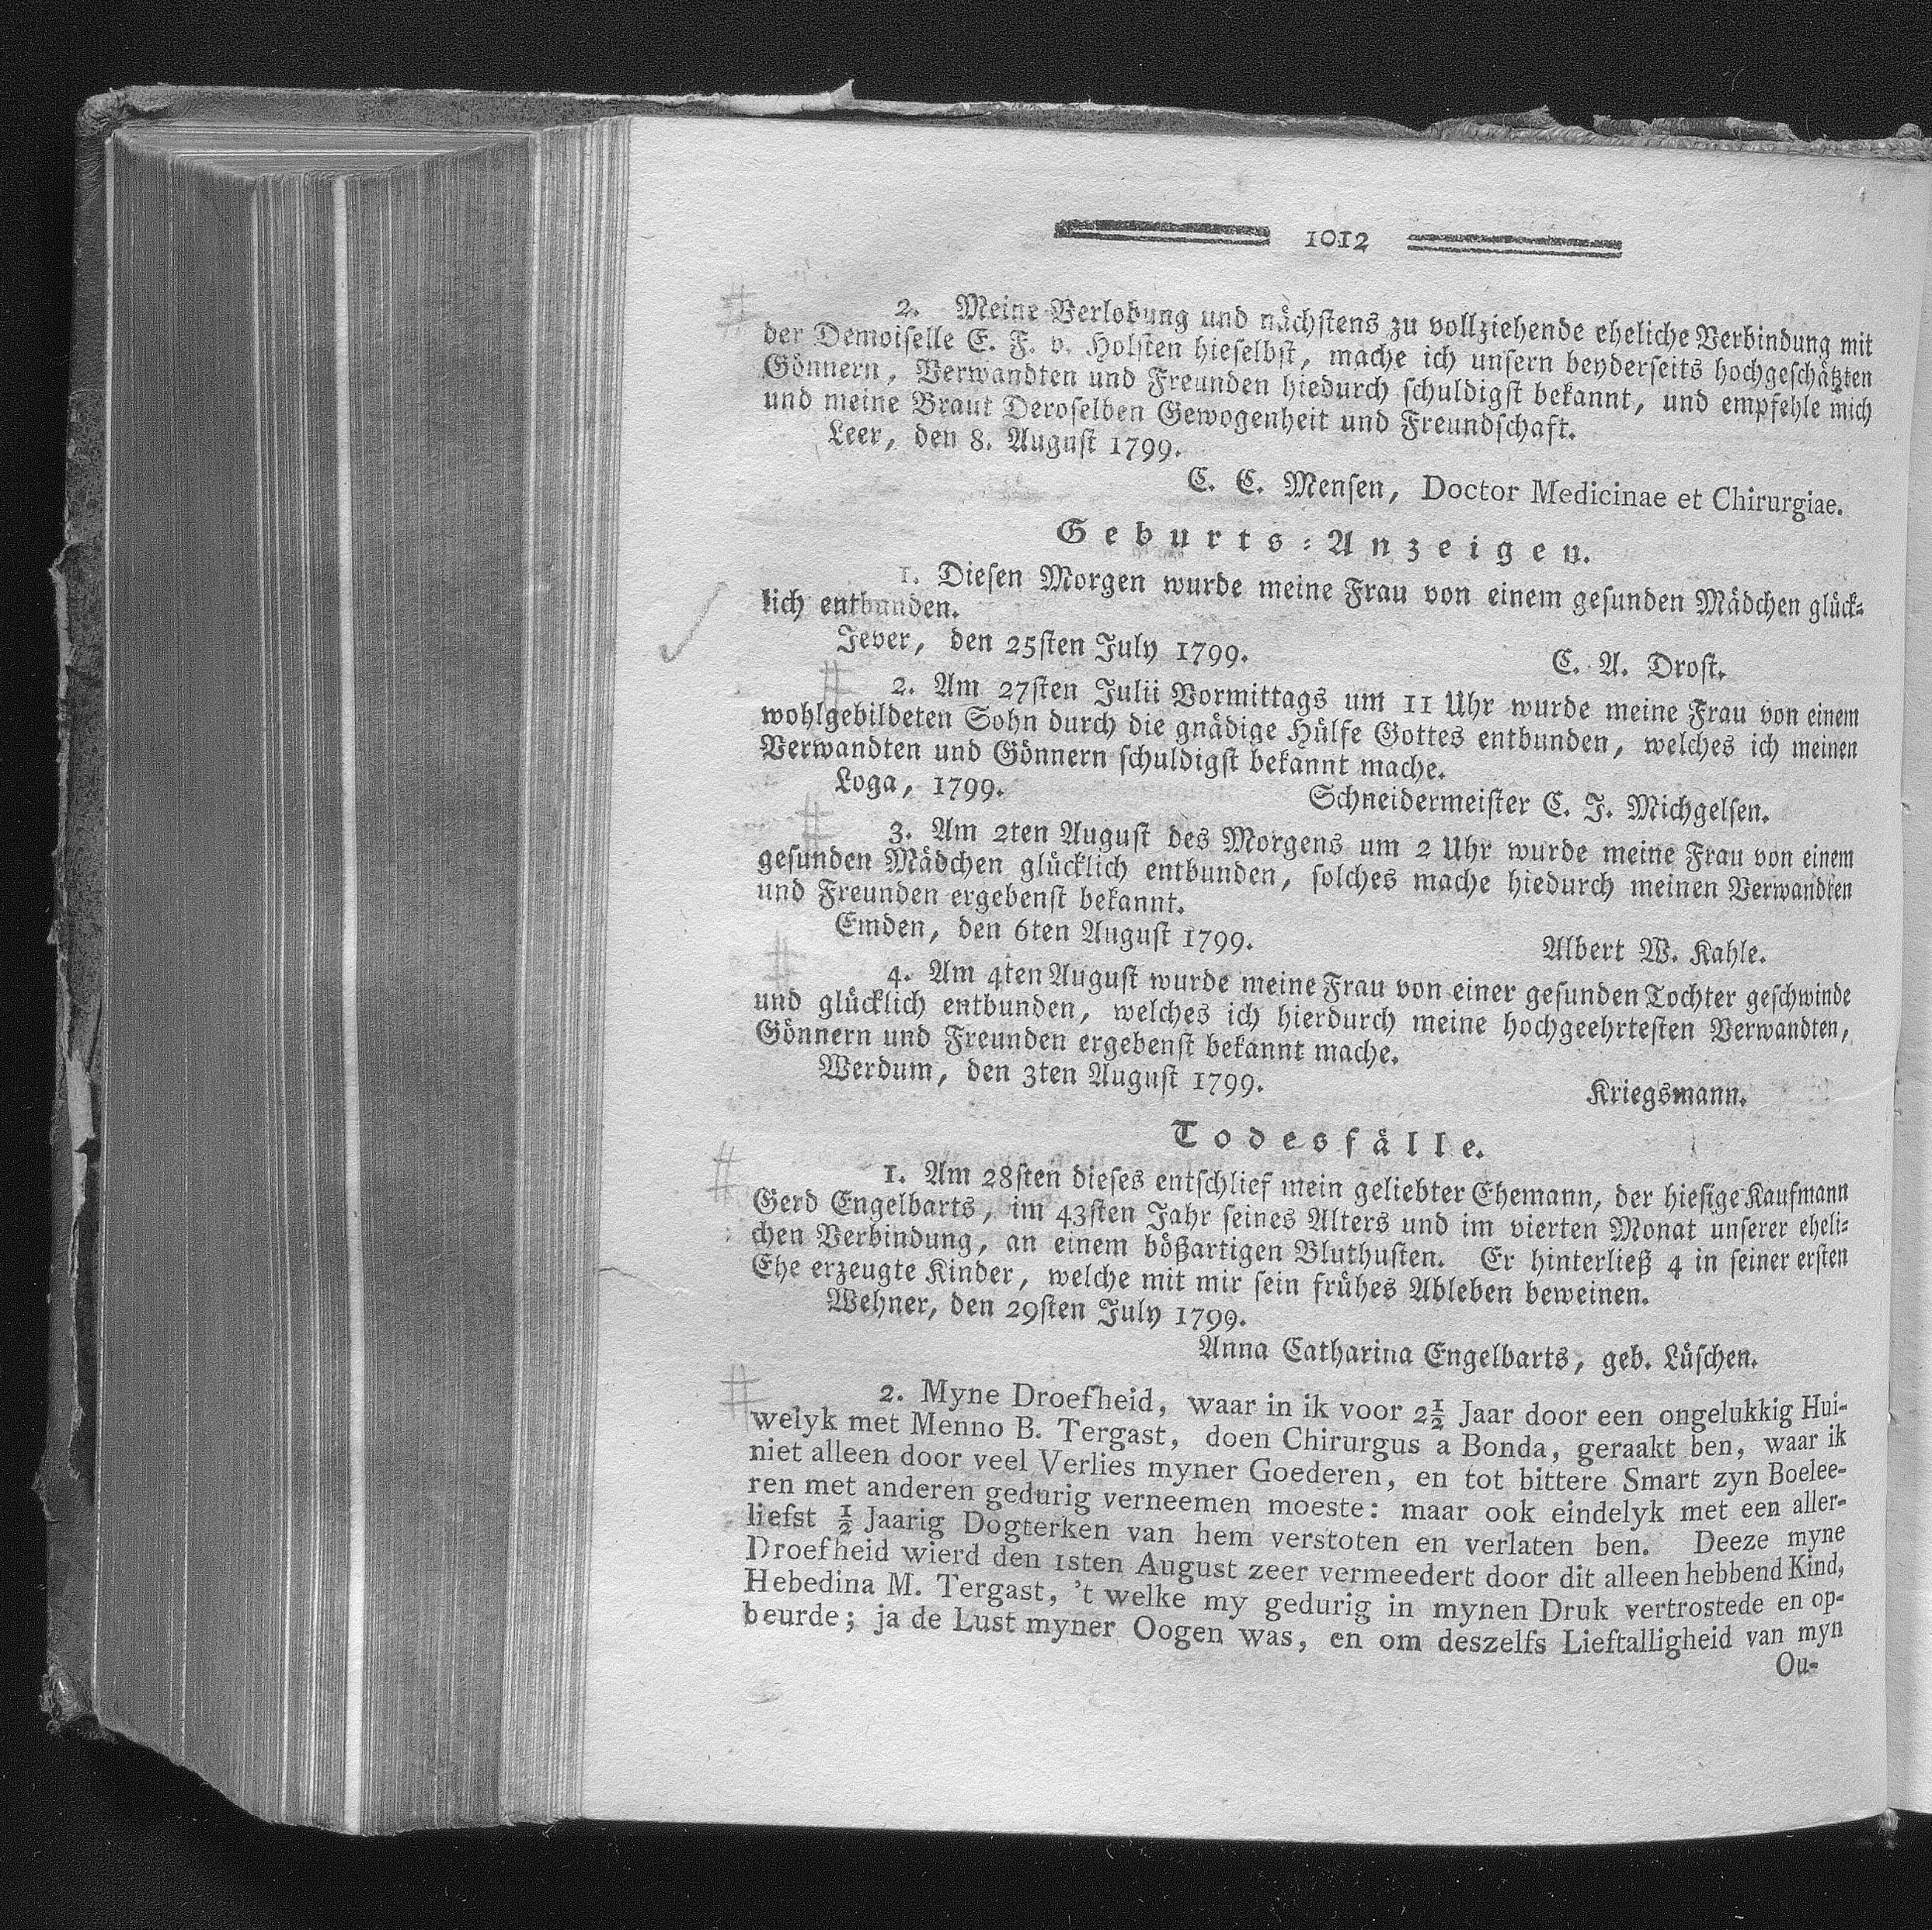 1012
2. Meine Verlobung und nächstens zu vollziehende eheliche Verbindung mit
der Demoiselle E. F. v. Holsten hieselbst, mache ich unsern beyderseits hochgeschätzten
Gönnern, Verwandten und Freunden hiedurch schuldigst bekannt, und empfehle mich
und meine Braut Deroselben Gewogenheit und Freundschaft.
Leer, den 8. August 1799.
C. C. Mensen, Doctor Medicinae et Chirurgiae.
Geburts-Anzeigen.
1. Diesen Morgen wurde meine Frau von einem gesunden Mädchen glück-
lich entbunden.
Jever, den 25sten July 1799.
C. A. Drost.
2. Am 27sten Julii Vormittags um 11 Uhr wurde meine Frau von einem
wohlgebildeten Sohn durch die gnädige Hülfe Gottes entbunden, welches ich meinen
Verwandten und Gönnern schuldigst bekannt mache.
Loga, 1799.
Schneidermeister C. J. Michgelsen.
3. Am 2ten August des Morgens um 2 Uhr wurde meine Frau von einem
gesunden Mädchen glücklich entbunden, solches mache hiedurch meinen Verwandten
und Freunden ergebenst bekannt.
Emden, den 6ten August 1799.
Albert W. Kahle.
4. Am 4ten August wurde meine Frau von einer gesunden Tochter geschwinde
und glücklich entbunden, welches ich hierdurch meine hochgeehrtesten Verwandten,
Gönnern und Freunden ergebenst bekannt mache.
Werdum, den 3ten August 1799.
Kriegsmann.
Todesfälle.
1. Am 28sten dieses entschlief mein geliebter Ehemann, der hiesige Kaufmann
Gerd Engelbarts, im 43sten Jahr seines Alters und im vierten Monat unserer eheli-
chen Verbindung, an einem bößartigen Bluthusten. Er hinterließ 4 in seiner ersten
Ehe erzeugte Kinder, welche mit mir sein frühes Ableben beweinen.
Wehner, den 29sten July 1799.
Anna Catharina Engelbarts, geb. Lüschen.
2. Myne Droefheid, waar in ik voor 2½ Jaar door een ongelukkig Hui-
welyk met Menno B. Tergast, doen Chirurgus a Bonda, geraakt ben, waar ik
niet alleen door veel Verlies myner Goederen, en tot bittere Smart zyn Boelee-
ren met anderen gedurig verneemen moeste: maar ook eindelyk met een aller-
liefst ½ Jaarig Dogterken van hem verstoten en verlaten ben. Deeze myne
Droefheid wierd den 1sten August zeer vermeedert door dit alleen hebbend Kind,
Hebedina M. Tergast, 't welke my gedurig in mynen Druk vertrostede en op-
beurde; ja de Lust myner Oogen was, en om deszelfs Lieftalligheid van myn
Ou-